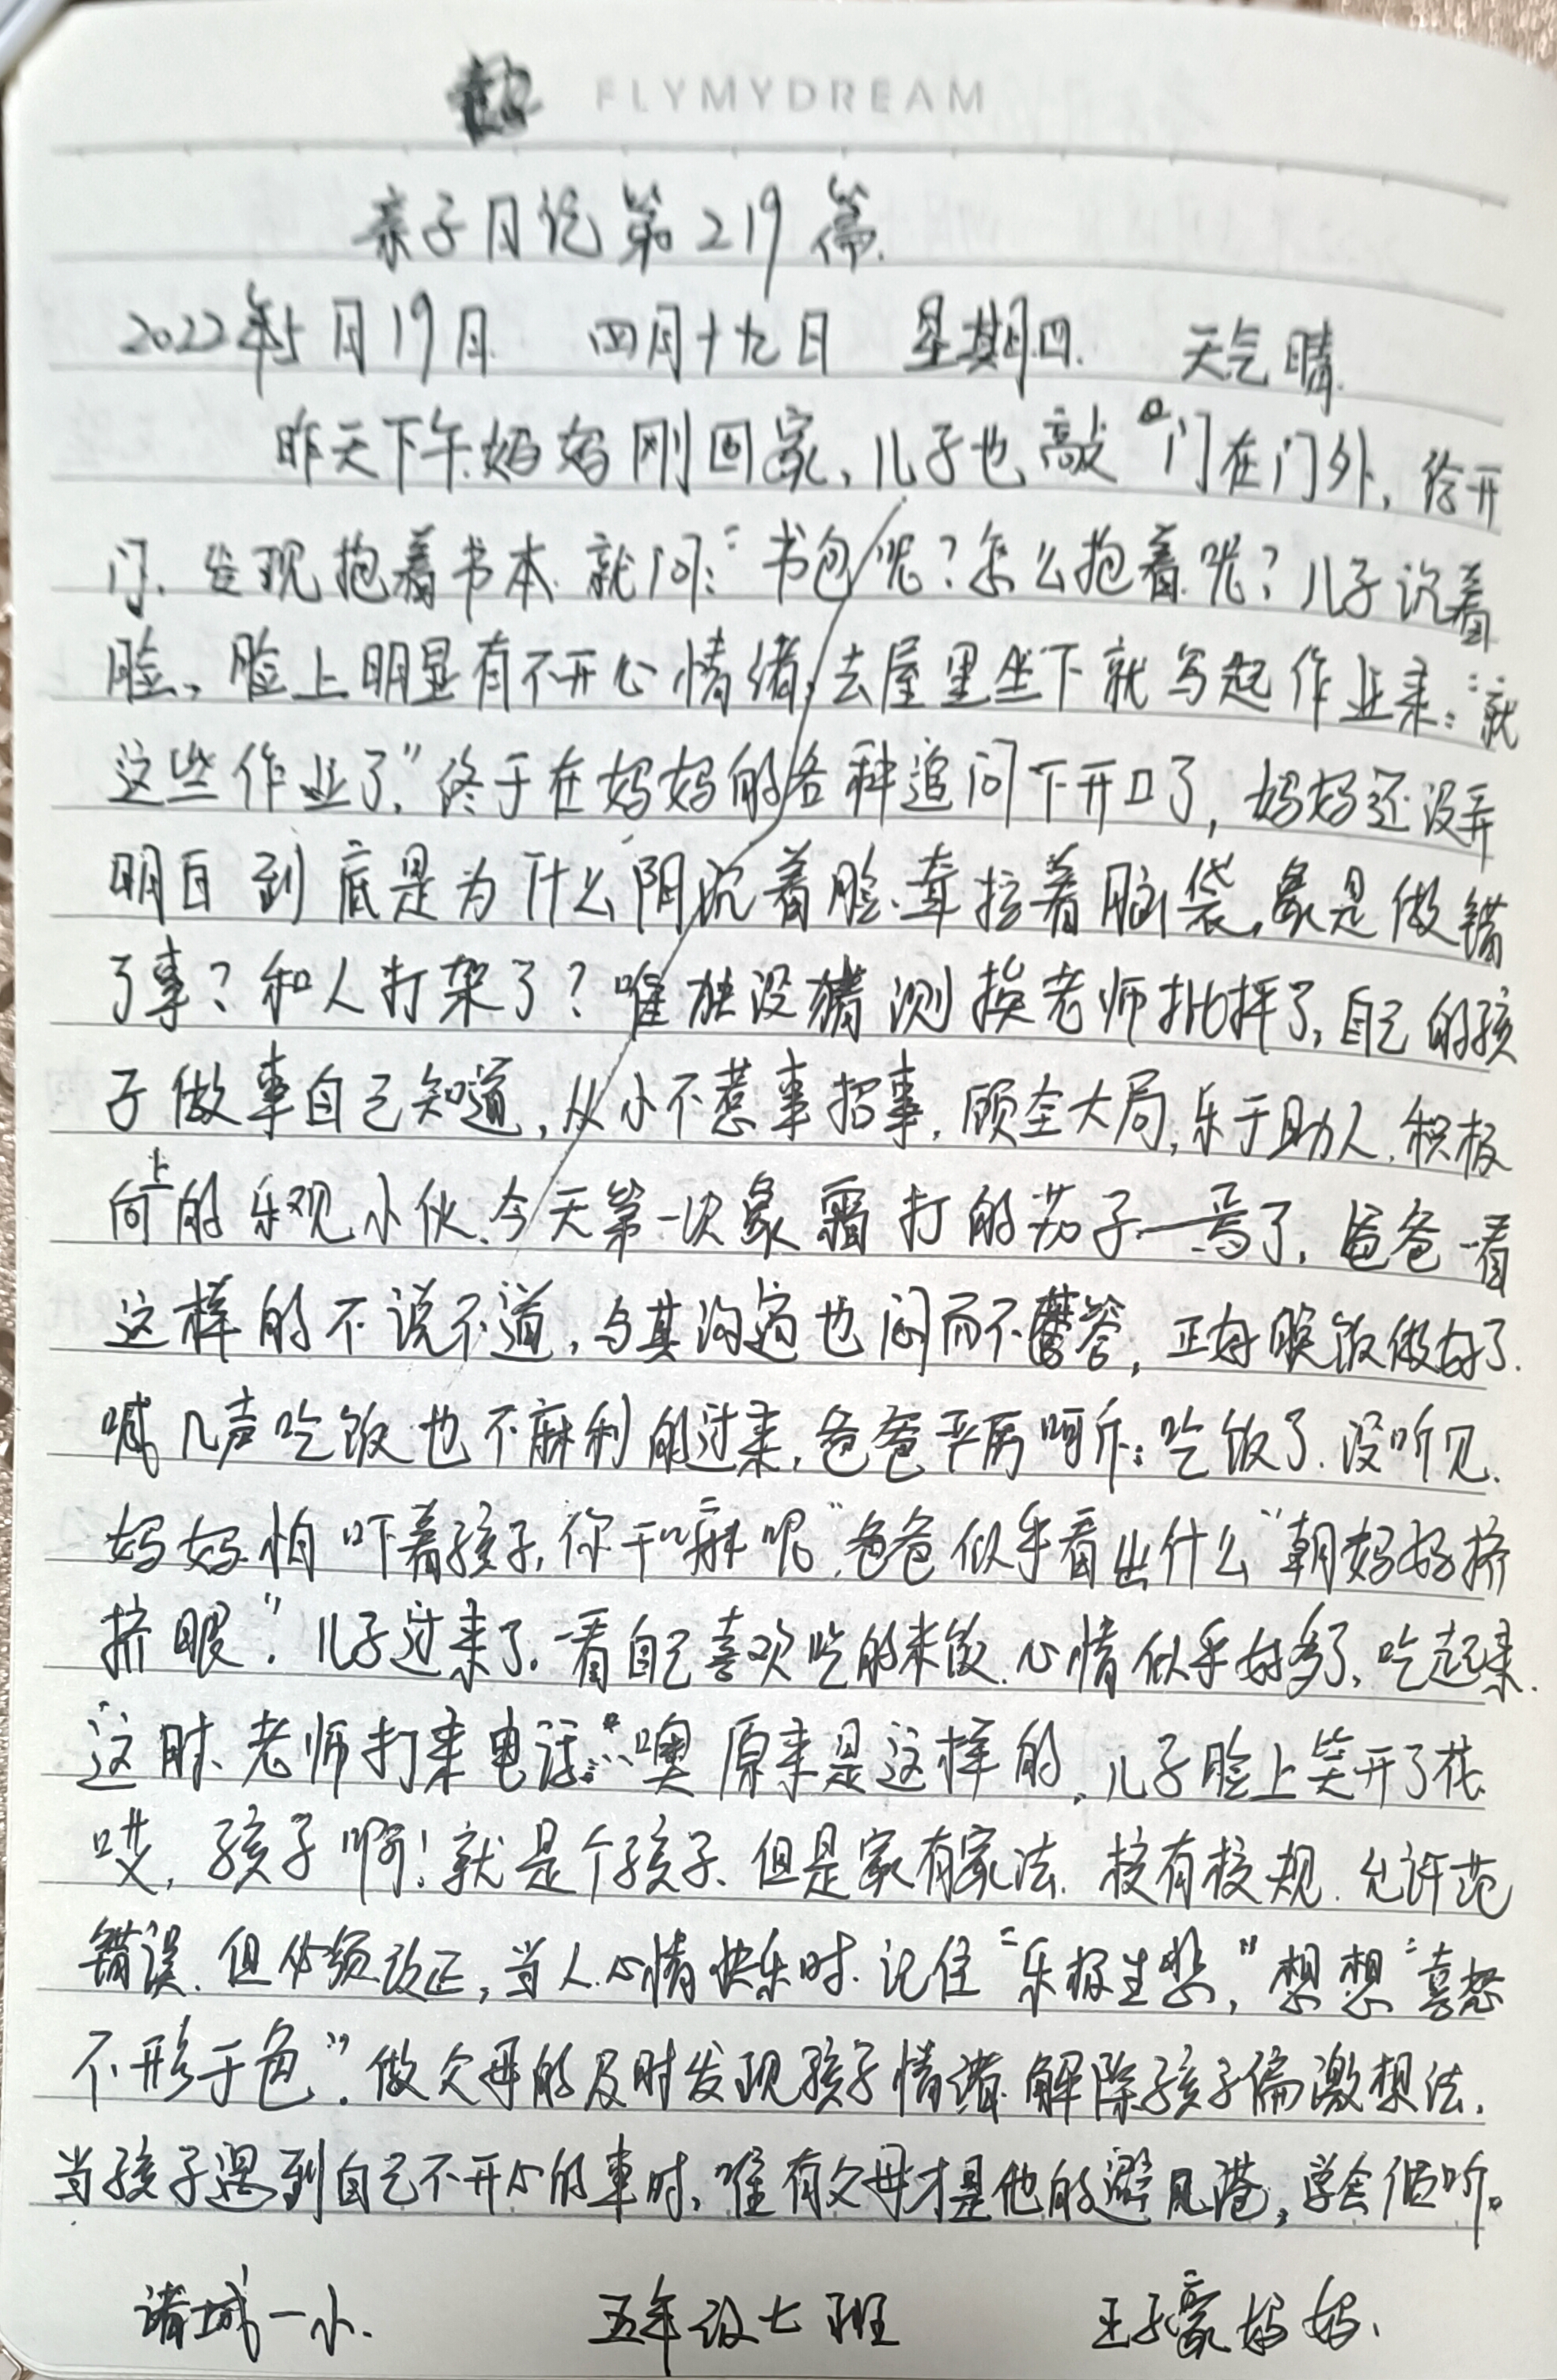 FLYMYDREAM
亲子日记第219篇.
2022年5月19日 四月十九日 星期四. 天气晴.
昨天下午.妈妈刚回家,儿子也敲门在门外,给开
门.发现抱着书本.就问:"书包呢?怎么抱着呢?儿子沉着
脸,脸上明显有不开心情绪,去屋里坐下就写起作业来:"就
这些作业了."终于在妈妈的各种追问下开口了,妈妈还没弄
明白到底是为什么阴沉着脸.耷拉着脑袋,象是做错
了事?和人打架了?唯独没猜测挨老师批抨了,自己的孩
子做事自己知道,从小不惹事招事,顾全大局,乐于助人,积极
向上的乐观小伙.今天第一次象霜打的茄子—焉了,爸爸一看
这样的不说不道,与其沟通也闷而不答,正好晚饭做好了.
喊几声吃饭也不麻利的过来,爸爸严厉呵斥:吃饭了.没听见.
妈妈怕吓着孩子,"你干嘛呢".爸爸似乎看出什么"朝妈妈挤
挤眼".儿子过来了.一看自己喜欢吃的米饭.心情似乎好多了,吃起来.
这时、老师打来电话:……噢原来是这样的,儿子脸上笑开了花
哎,孩子啊!就是个孩子、但是家有家法.校有校规.允许范
错误.但必须改正,当人心情快乐时.记住"乐极生悲,"想想"喜怒
不形于色".做父母的及时发现孩子情绪.解除孩子偏激想法.
当孩子遇到自己不开心的事时,唯有父母才是他的避风港,学会倾听。
诸城一小. 五年级七班 王子豪妈妈.